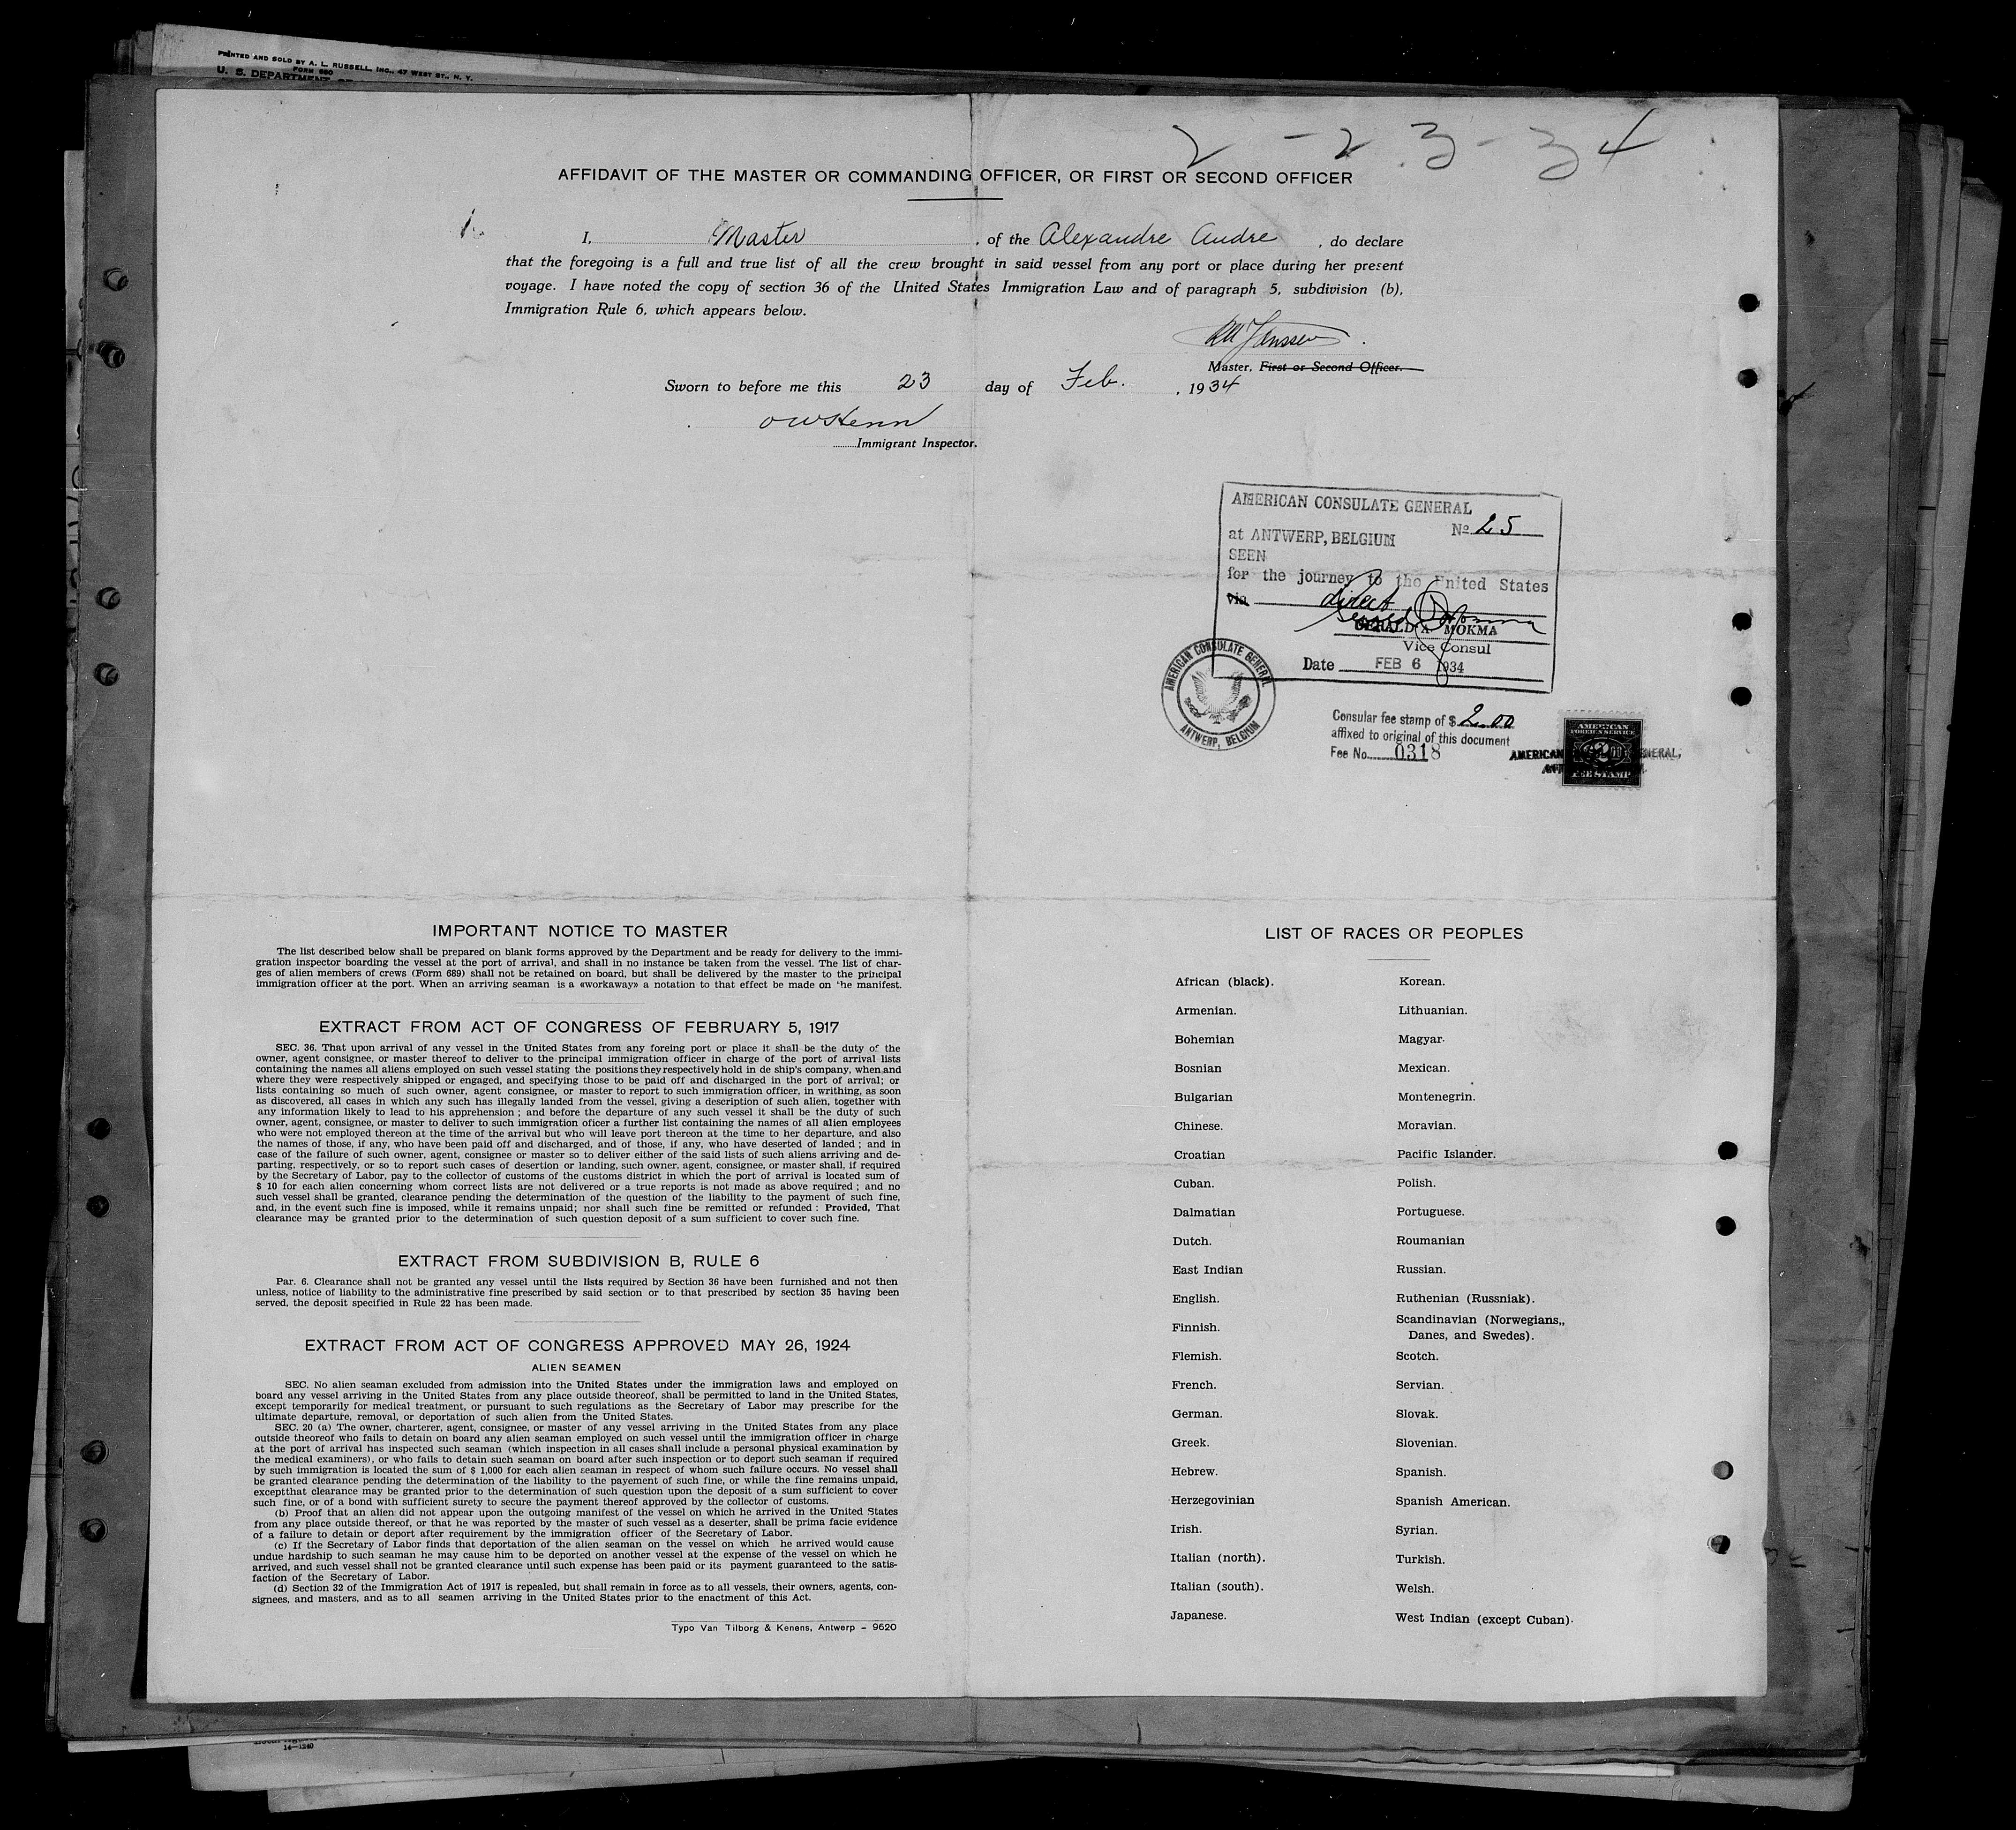 PRINTED AND SOLD BY A. L. RUSSELL, INC., 47 WEST ST., N. Y.
FORM 680
U. S. DEPARTMENT OF
2 - 23 - 34
AFFIDAVIT OF THE MASTER OR COMMANDING OFFICER, OR FIRST OR SECOND OFFICER
I, Master, of the Alexandre Andre, do declare
that the foregoing is a full and true list of all the crew brought in said vessel from any port or place during her present
voyage. I have noted the copy of section 36 of the United States Immigration Law and of paragraph 5, subdivision (b),
Immigration Rule 6, which appears below.
Janssen
Master, First or Second Officer.
Sworn to before me this 23 day of Feb. , 1934
OW Henn
Immigrant Inspector.
AMERICAN CONSULATE GENERAL
No 25
at ANTWERP, BELGIUM
SEEN
for the journey to the United States
via direct
GERALD A MOKMA
Vice Consul
Date FEB 6 1934
AMERICAN CONSULATE GENERAL
ANTWERP, BELGIUM
Consular fee stamp of $ 2.00
affixed to original of this document
Fee No. 0318
AMERICAN FOREIGN SERVICE
FEE STAMP
IMPORTANT NOTICE TO MASTER
The list described below shall be prepared on blank forms approved by the Department and be ready for delivery to the immi-
gration inspector boarding the vessel at the port of arrival, and shall in no instance be taken from the vessel. The list of char-
ges of alien members of crews (Form 689) shall not be retained on board, but shall be delivered by the master to the principal
immigration officer at the port. When an arriving seaman is a «workaway» a notation to that effect be made on the manifest.
EXTRACT FROM ACT OF CONGRESS OF FEBRUARY 5, 1917
SEC. 36. That upon arrival of any vessel in the United States from any foreing port or place it shall be the duty of the
owner, agent consignee, or master thereof to deliver to the principal immigration officer in charge of the port of arrival lists
containing the names all aliens employed on such vessel stating the positions they respectively hold in de ship's company, when and
where they were respectively shipped or engaged, and specifying those to be paid off and discharged in the port of arrival; or
lists containing so much of such owner, agent consignee, or master to report to such immigration officer, in writhing, as soon
as discovered, all cases in which any such has illegally landed from the vessel, giving a description of such alien, together with
any information likely to lead to his apprehension ; and before the departure of any such vessel it shall be the duty of such
owner, agent, consignee, or master to deliver to such immigration oficer a further list containing the names of all alien employees
who were not employed thereon at the time of the arrival but who will leave port thereon at the time to her departure, and also
the names of those, if any, who have been paid off and discharged, and of those, if any, who have deserted of landed ; and in
case of the failure of such owner, agent, consignee or master so to deliver either of the said lists of such aliens arriving and de-
parting, respectively, or so to report such cases of desertion or landing, such owner. agent, consignee, or master shall, if required
by the Secretary of Labor, pay to the collector of customs of the customs district in which the port of arrival is located sum of
$ 10 for each alien concerning whom correct lists are not delivered or a true reports is not made as above required ; and no
such vessel shall be granted, clearance pending the determination of the question of the liability to the payment of such fine,
and, in the event such fine is imposed, while it remains unpaid; nor shall such fine be remitted or refunded : Provided, That
clearance may be granted prior to the determination of such question deposit of a sum sufficient to cover such fine.
EXTRACT FROM SUBDIVISION B, RULE 6
Par. 6. Clearance shall not be granted any vessel until the lists required by Section 36 have been furnished and not then
unless, notice of liability to the administrative fine prescribed by said section or to that prescribed by section 35 having been
served, the deposit specified in Rule 22 has been made.
EXTRACT FROM ACT OF CONGRESS APPROVED MAY 26, 1924
ALIEN SEAMEN
SEC. No alien seaman excluded from admission into the United States under the immigration laws and employed on
board any vessel arriving in the United States from any place outside theoreof, shall be permitted to land in the United States,
except temporarily for medical treatment, or pursuant to such regulations as the Secretary of Labor may prescribe for the
ultimate departure, removal, or deportation of such alien from the United States.
SEC. 20 (a) The owner, charterer, agent, consignee, or master of any vessel arriving in the United States from any place
outside thereof who fails to detain on board any alien seaman employed on such vessel until the immigration officer in charge
at the port of arrival has inspected such seaman (which inspection in all cases shall include a personal physical examination by
the medical examiners), or who fails to detain such seaman on board after such inspection or to deport such seaman if required
by such immigration is located the sum of $ 1,000 for each alien seaman in respect of whom such failure occurs. No vessel shall
be granted clearance pending the determination of the liability to the payement of such fine, or while the fine remains unpaid,
exceptthat clearance may be granted prior to the determination of such question upon the deposit of a sum sufficient to cover
such fine, or of a bond with sufficient surety to secure the payment thereof approved by the collector of customs.
(b) Proof that an alien did not appear upon the outgoing manifest of the vessel on which he arrived in the United States
from any place outside thereof, or that he was reported by the master of such vessel as a deserter, shall be prima facie evidence
of a failure to detain or deport after requirement by the immigration officer of the Secretary of Labor.
(c) If the Secretary of Labor finds that deportation of the alien seaman on the vessel on which he arrived would cause
undue hardship to such seaman he may cause him to be deported on another vessel at the expense of the vessel on which he
arrived, and such vessel shall not be granted clearance until such expense has been paid or its payment guaranteed to the satis-
faction of the Secretary of Labor.
(d) Section 32 of the Immigration Act of 1917 is repealed, but shall remain in force as to all vessels, their owners, agents, con-
signees, and masters, and as to all seamen arriving in the United States prior to the enactment of this Act.
Typo Van Tilborg & Kenens, Antwerp - 9620
LIST OF RACES OR PEOPLES
African (black).
Armenian.
Bohemian
Bosnian
Bulgarian
Chinese.
Croatian
Cuban.
Dalmatian
Dutch.
East Indian
English.
Finnish.
Flemish.
French.
German.
Greek.
Hebrew.
Herzegovinian
Irish.
Italian (north).
Italian (south).
Japanese.
Korean.
Lithuanian.
Magyar.
Mexican.
Montenegrin.
Moravian.
Pacific Islander.
Polish.
Portuguese.
Roumanian
Russian.
Ruthenian (Russniak).
Scandinavian (Norwegians,,
Danes, and Swedes).
Scotch.
Servian.
Slovak.
Slovenian.
Spanish.
Spanish American.
Syrian.
Turkish.
Welsh.
West Indian (except Cuban).
14-1240